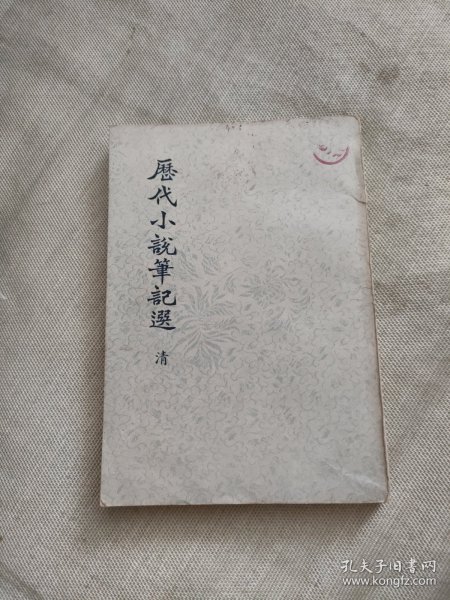 歷代小說筆記選
清
孔夫子旧书网
www.kongfz.com